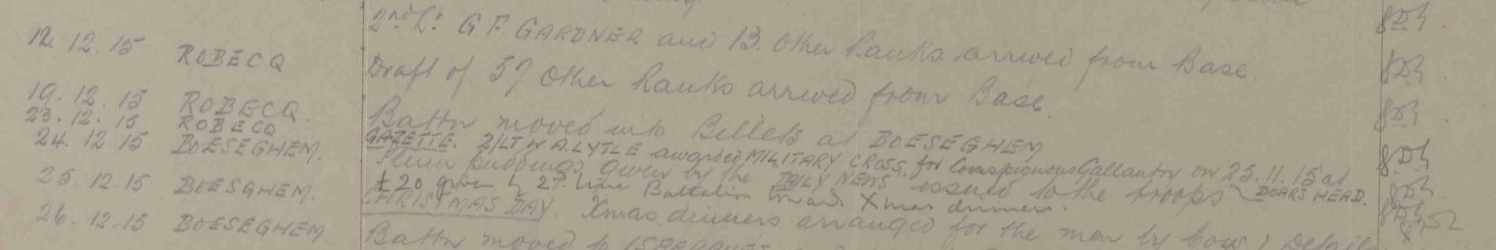 12.12.15 ROBECQ 2nd Lt. G F GARDNER and 13 Other Ranks arrived from Base.
Draft of 57 Other Ranks arrived from Base.
19.12.15 ROBECQ
23.12.15 ROBECQ Battn moved into Billets at BOESEGHEM
24.12.15 BOESEGHEM. GAZETTE. 2/LT W A. LYTLE awarded MILITARY CROSS, for Conspicuous Gallantry on 25.11.15 at BOARS HEAD.
Plum puddings given by the DAILY NEWS issued to the troops
£20 given by 2nd Line Battalion towards Xmas dinners.
25.12.15 BOESGHEM. CHRISTMAS DAY. Xmas dinners arranged for the men by Coys
26.12.15 BOESEGHEM Battn moved to